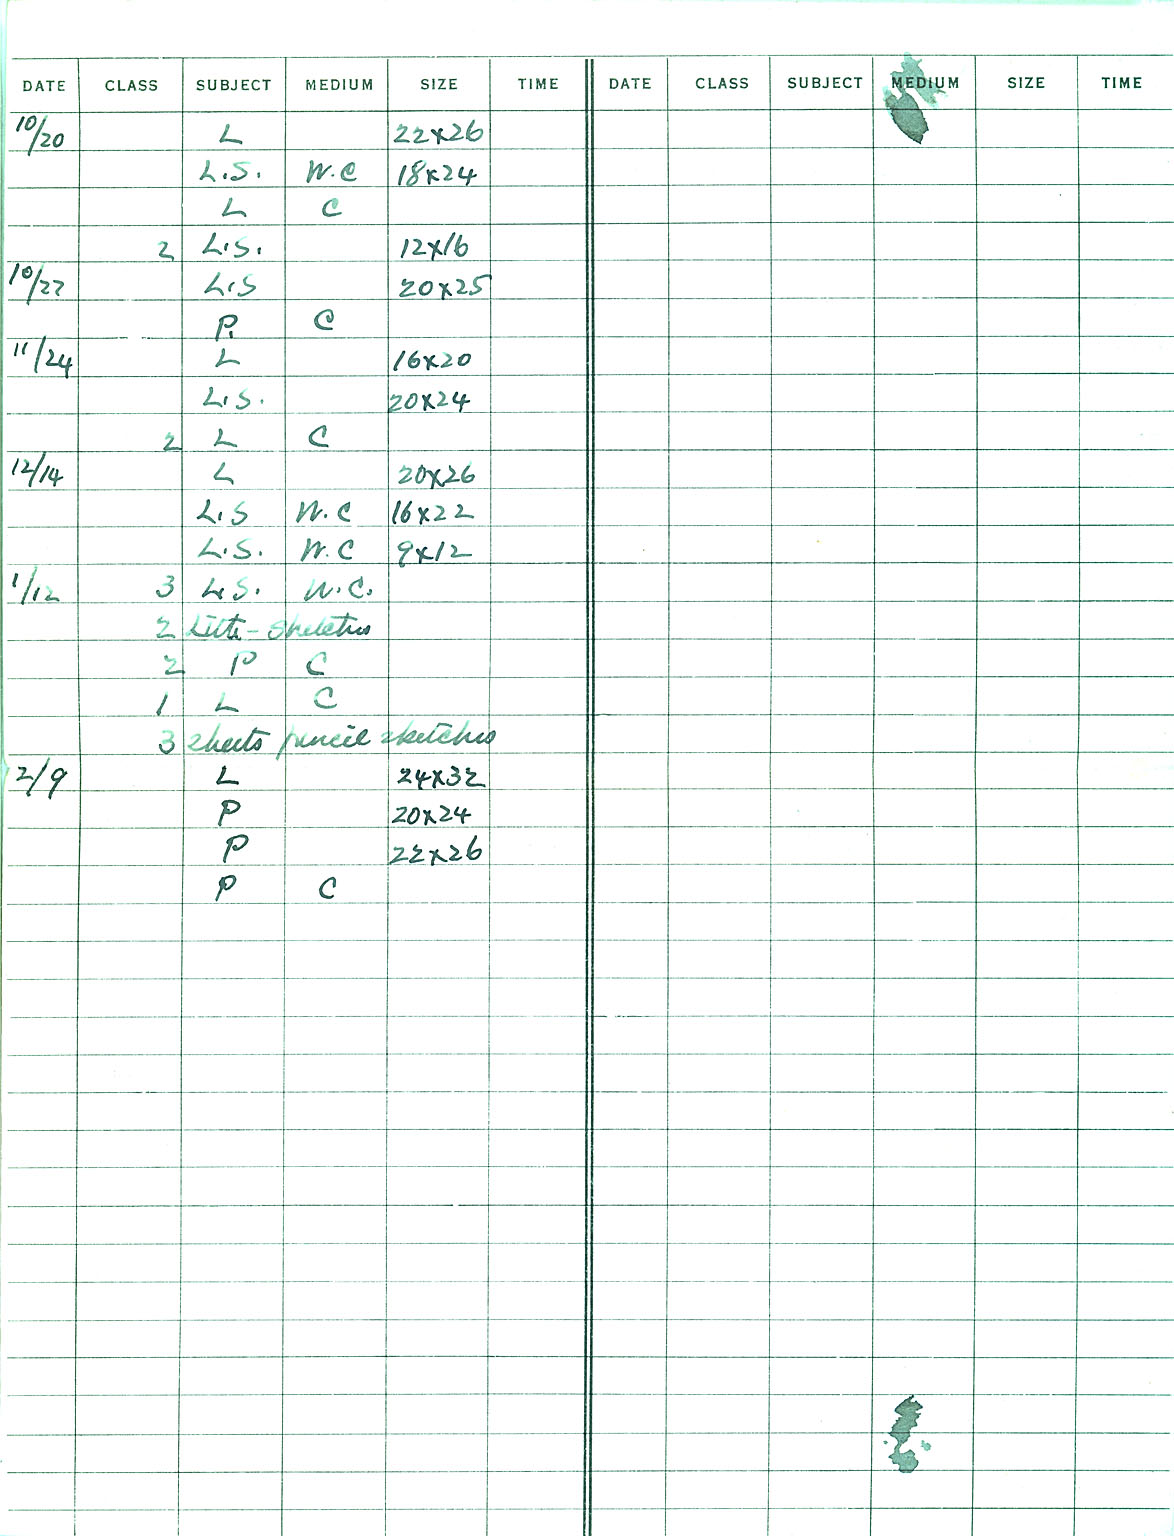 DATE CLASS SUBJECT MEDIUM SIZE TIME DATE CLASS SUBJECT MEDIUM SIZE TIME
10/20 L 22x26
L.S. W.C 18x24
L C
2 L.S. 12x16
10/27 L.S 20x25
P. C
11/24 L 16x20
L.S. 20x24
2 L C
12/14 L 20x26
L.S W.C 16x22
L.S. W.C 9x12
1/12 3 L.S. W.C.
2 - sketches
2 P C
1 L C
3 sheets pencil sketches
2/9 L 24x32
P 20x24
P 22x26
P C